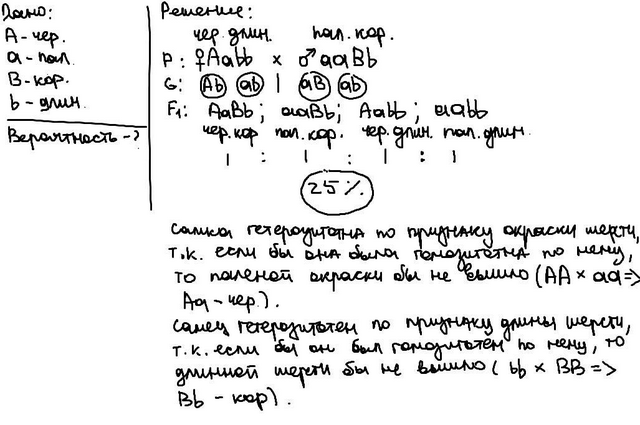 Дано:
А - чер.
а - пал.
В - кор.
b - длин.
Вероятность - ?
Решение:
чер. длин. пал. кор.
P: ♀Aabb x ♂ aaBb
G: Ab ab | aB ab
F₁: AaBb; aaBb; Aabb; aabb
чер. кор пал. кор. чер. длин. пал. длин.
1 : 1 : 1 : 1
25%
Самка гетерозиготна по признаку окраски шерсти,
т.к. если бы она была гомозиготна по нему,
то паленой окраски бы не вышло (AA x aa =>
Aa - чер.).
Самец гетерозиготен по признаку длины шерсти,
т.к. если бы он был гомозиготен по нему, то
длинной шерсти бы не вышло (bb x BB =>
Bb - кор).